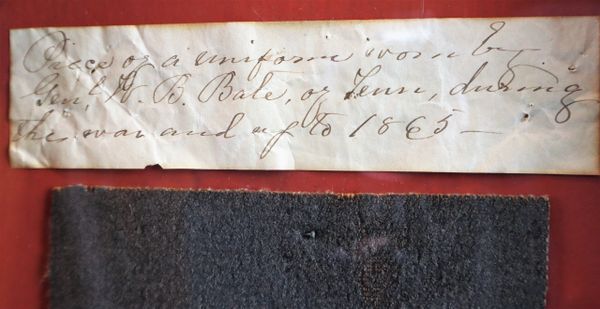 Piece of a uniform worn by
Gen'l W. B. Bate, of Tenn, during
the war and up to 1865 —